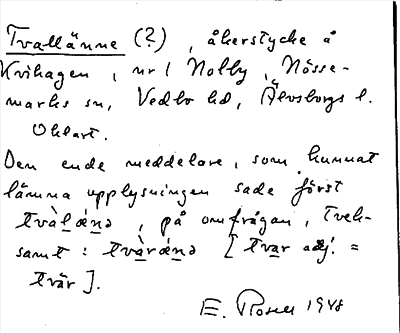 Tvallänne (?), åkerstycke å
Kvihagen, nr 1 Nolby, Nösse-
marks sn, Vedbo hd, Älvsborgs l.
Oklart.
Den ende meddelare, som kunnat
lämna upplysningen sade först
tvàlánə, på omfrågan, tvek-
samt: tvàránə [tvar adj. =
tvär].
E. Rosen 1948